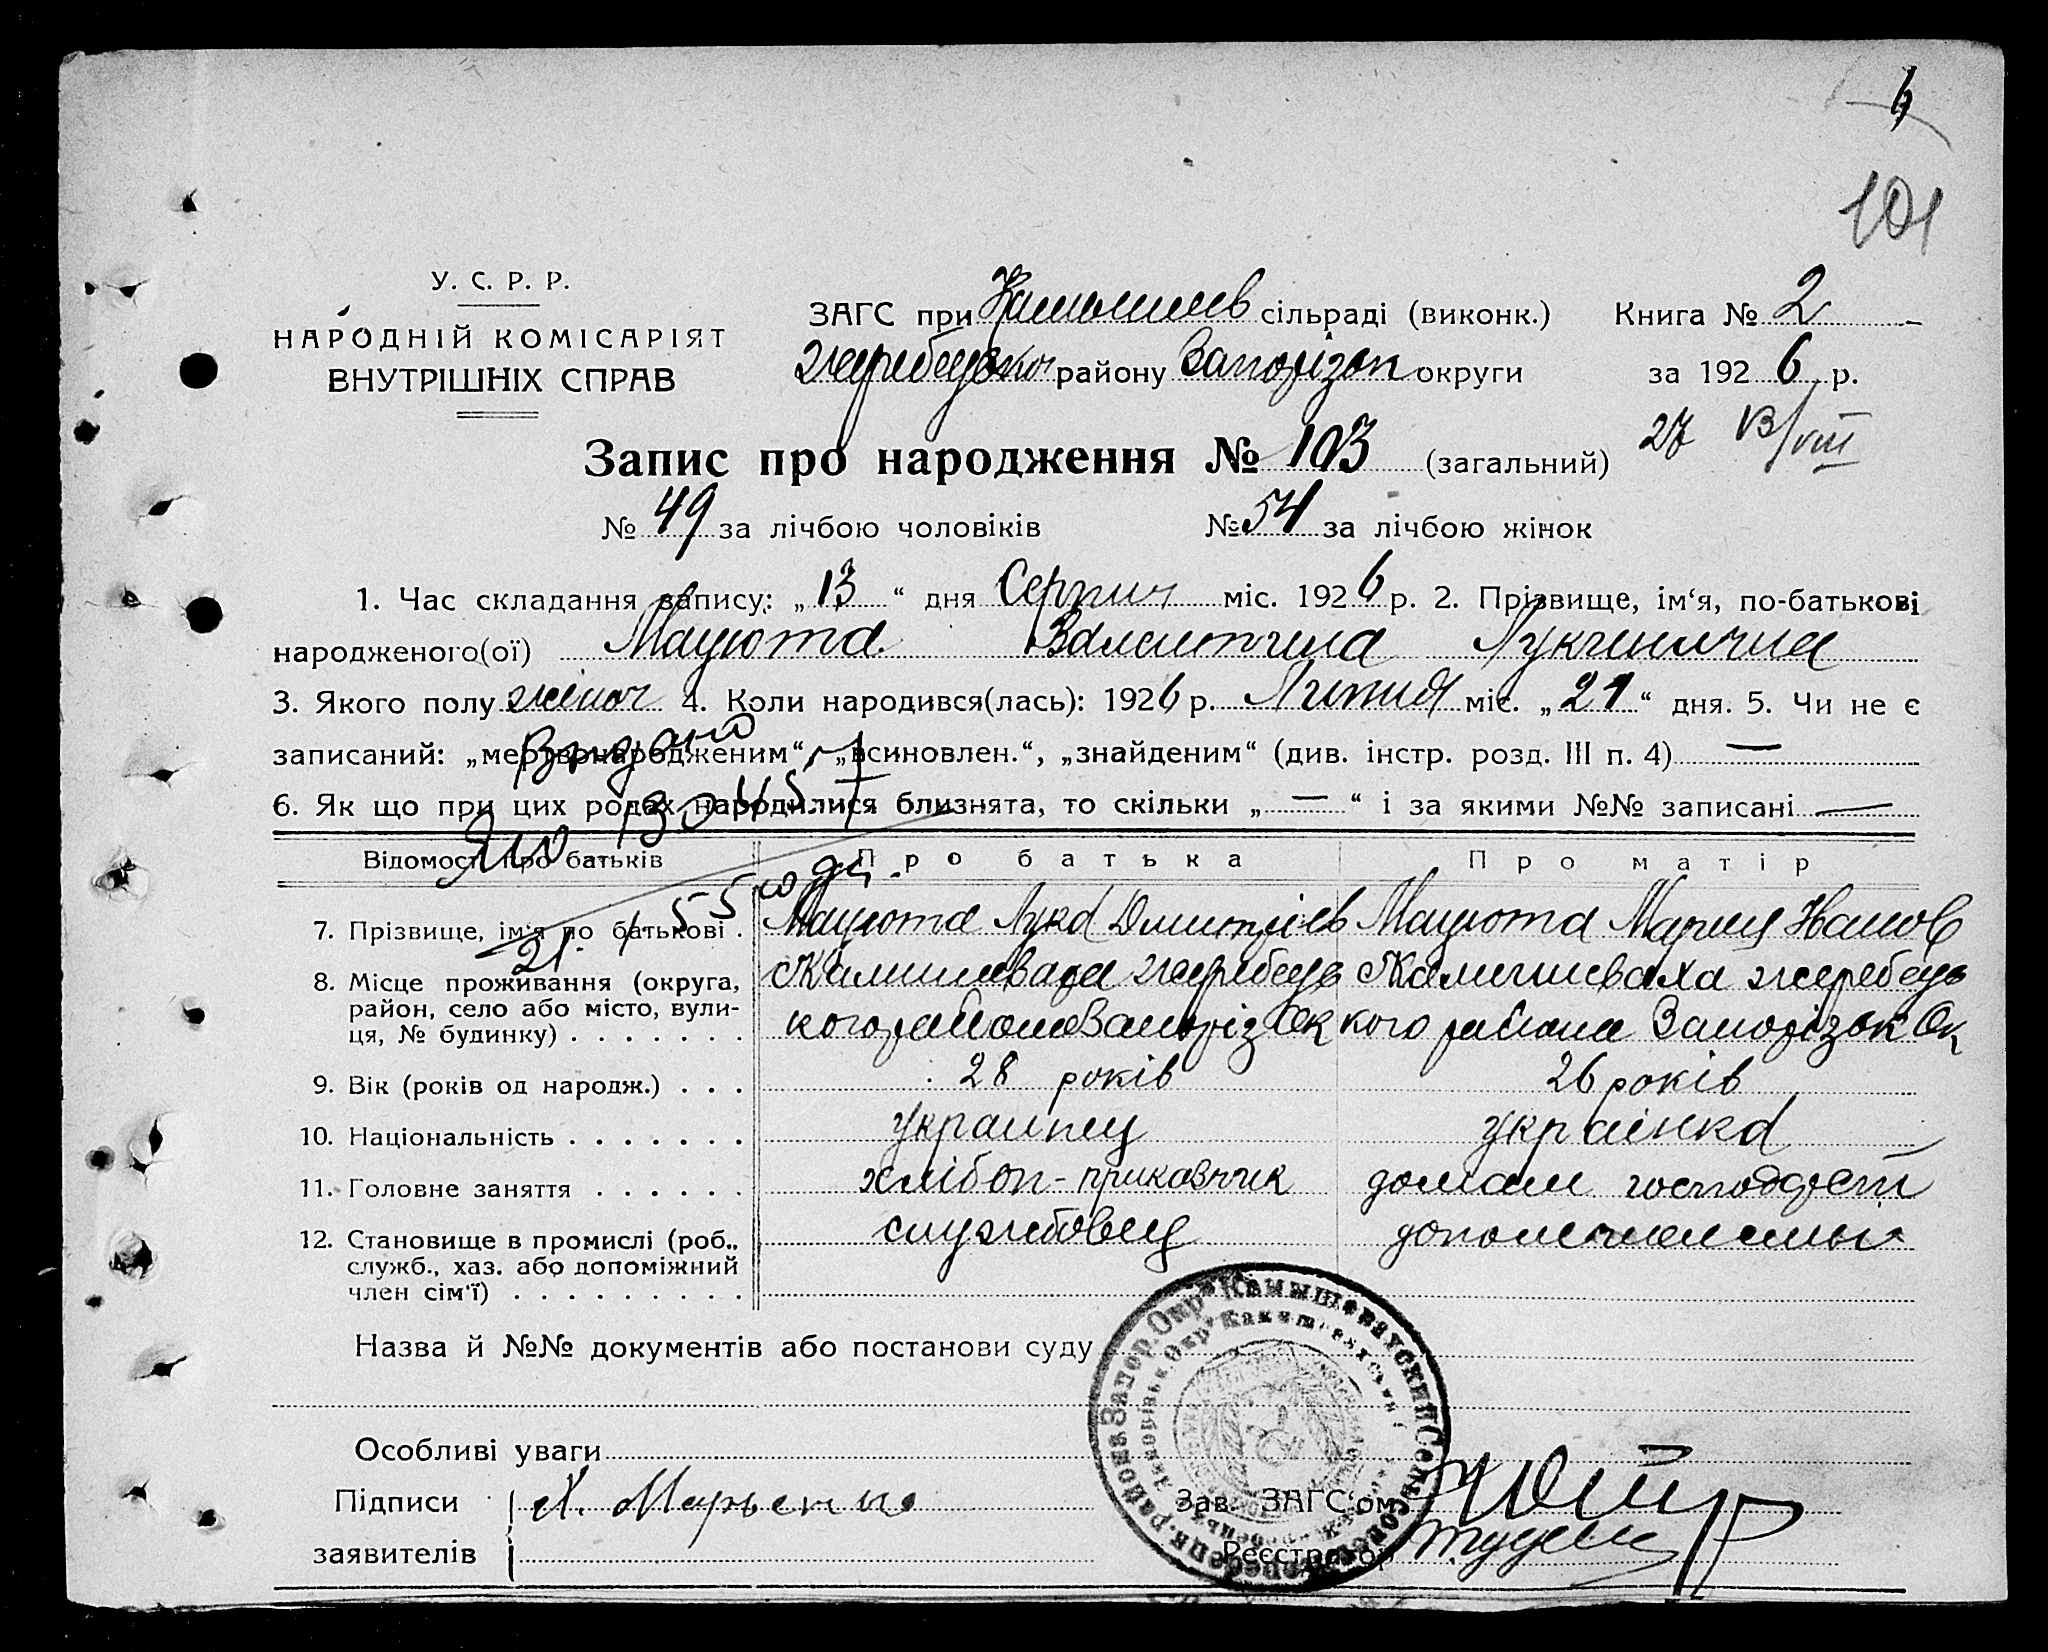 6
101
У. С. Р. Р.
НАРОДНІЙ КОМІСАРІЯТ
ВНУТРІШНІХ СПРАВ
ЗАГС при Камишев сільраді (виконк.)
Жеребецьког району Запорізьк округи
Книга № 2
за 1926 р.
Запис про народження № 103 (загальний)
27 VIII
№ 49 за лічбою чоловіків № 54 за лічбою жінок
1. Час складання запису: „13“ дня Серпня міс. 1926 р. 2. Прізвище, ім‘я, по-батькові
народженого(ої) Мацюта Валентина Лукинична
3. Якого полу жіноч 4. Коли народився(лась): 1926 р. Липня міс. „21“ дня. 5. Чи не є
записаний: „мертвонародженим“, „всиновлен.“, „знайденим“ (див. інстр. розд. III п. 4) —
6. Як що при цих родах народилися близнята, то скільки „—“ і за якими №№ записані —
Видано
ЯЮ
21. 1. 55 года.
Відомості про батьків Про батька Про матір
7. Прізвище, ім‘я по батькові . Мацюта Лука Дмитріев Мацюта Мария Иванов
8. Місце проживання (округа, район, село або місто, вулиця, № будинку) . . . . . . .
с Камишеваха жеребець с Камишеваха жеребець
кого района Запоріз Ок кого района Запорізьк Ок
9. Вік (років од народж.) . . . 28 років 26 років
10. Національність . . . . . . . украинец українка
11. Головне заняття . . . . . . хлібоп-приказчик домашн господарст
12. Становище в промислі (роб., служб., хаз. або допоміжний член сім‘ї) . . . . . . . . . службовец
Назва й №№ документів або постанови суду
Особливі уваги
Підписи
заявителів
Зав. ЗАГС‘ом
Реєстратор
Камышеваховский Сельсовет Жеребецк. района Запор. Окр.